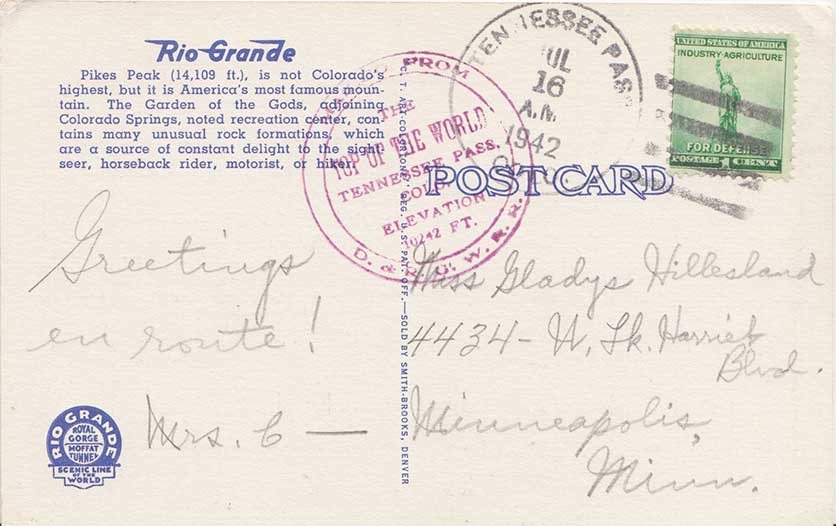 Rio Grande
Pikes Peak (14,109 ft.), is not Colorado's
highest, but it is America's most famous moun-
tain. The Garden of the Gods, adjoining
Colorado Springs, noted recreation center, con-
tains many unusual rock formations, which
are a source of constant delight to the sight
seer, horseback rider, motorist, or hiker.
FROM
THE
TOP OF THE WORLD
TENNESSEE PASS,
COLO.
ELEVATION
10242 FT.
D. & R. G. W. R. R.
TENNESSEE PASS
JUL
16
A.M.
1942
UNITED STATES OF AMERICA
INDUSTRY-AGRICULTURE
FOR DEFENSE
POSTAGE 1 CENT
POST CARD
C. T. ART-COLORTONE REG. U.S. PAT. OFF.—SOLD BY SMITH-BROOKS, DENVER
Greetings
en route!
Mrs. C —
Miss Gladys Hillesland
4434 - W. Lk. Harriet
Blvd.
Minneapolis,
Minn.
RIO GRANDE
ROYAL
GORGE
MOFFAT
TUNNEL
SCENIC LINE
OF THE
WORLD